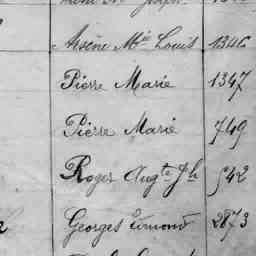 Arsène M^ie Louis 1346
Pierre Marie 1347
Pierre Marie 749
Roger Aug^te J^h 542
Georges Edmond 2873